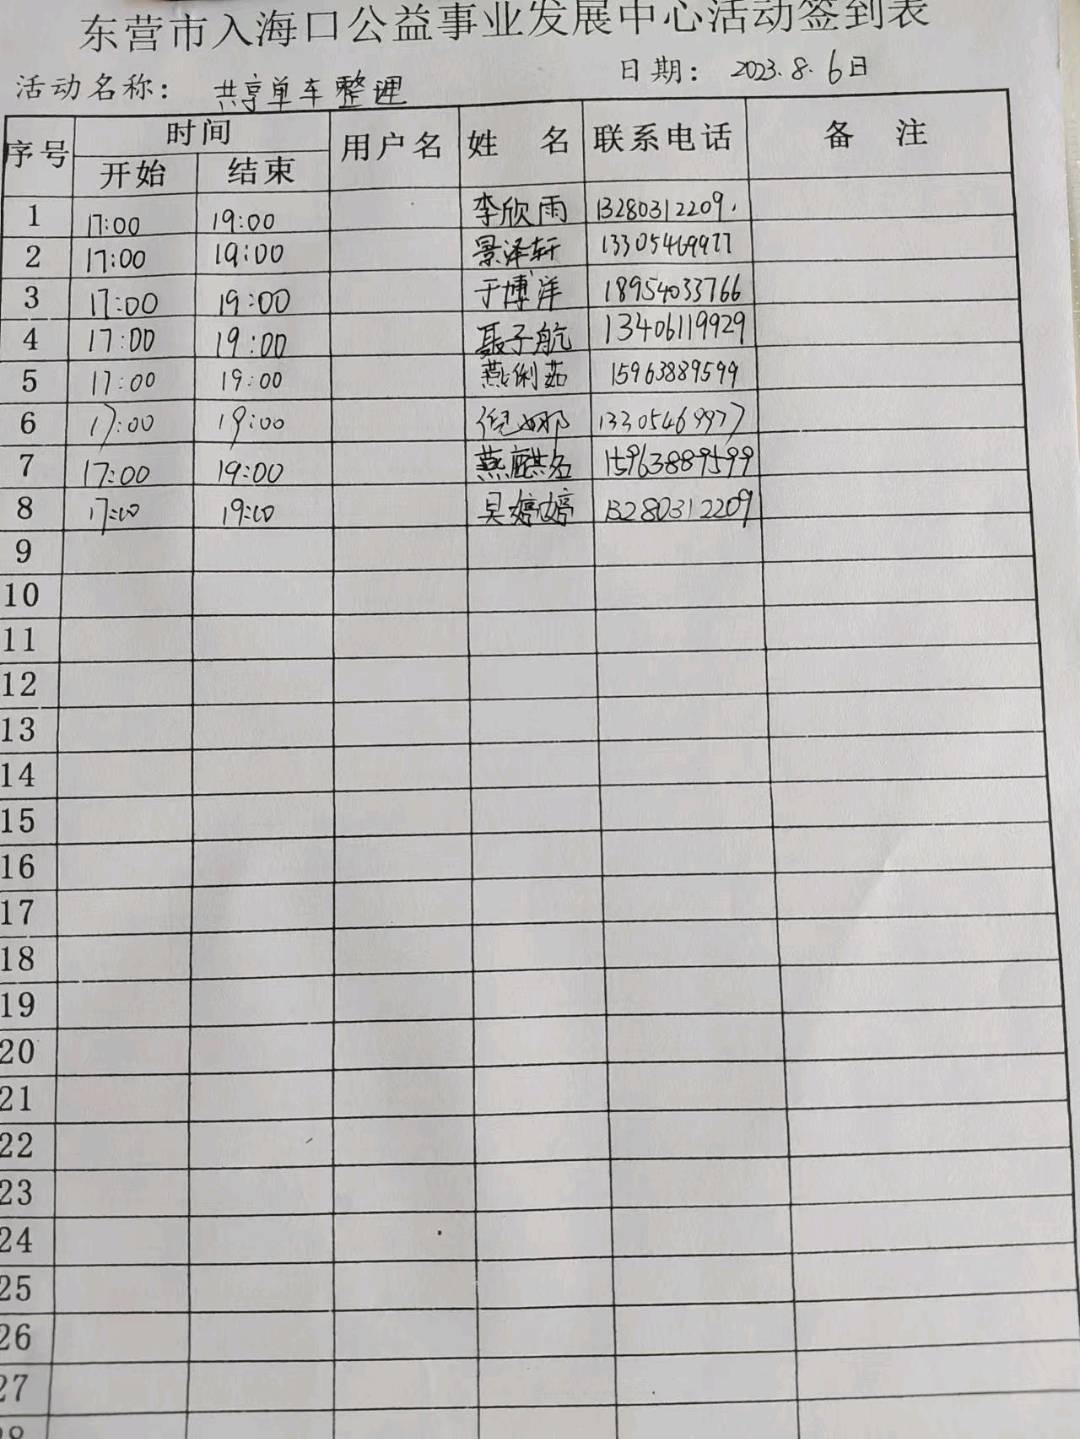 东营市入海口公益事业发展中心活动签到表
活动名称： 共享单车整理 日期： 2023.8.6日
序号 时间 用户名 姓名 联系电话 备注
开始 结束
1 17:00 19:00 李欣雨 13280312209.
2 17:00 19:00 景泽轩 13305469977
3 17:00 19:00 于博洋 18954033766
4 17:00 19:00 聂子航 13406119929
5 17:00 19:00 燕俐茹 15963889599
6 17:00 19:00 倪娜 13305469977
7 17:00 19:00 15963889599
8 17:00 19:00 吴婷婷 13280312209
9
10
11
12
13
14
15
16
17
18
19
20
21
22
23
24
25
26
27
28